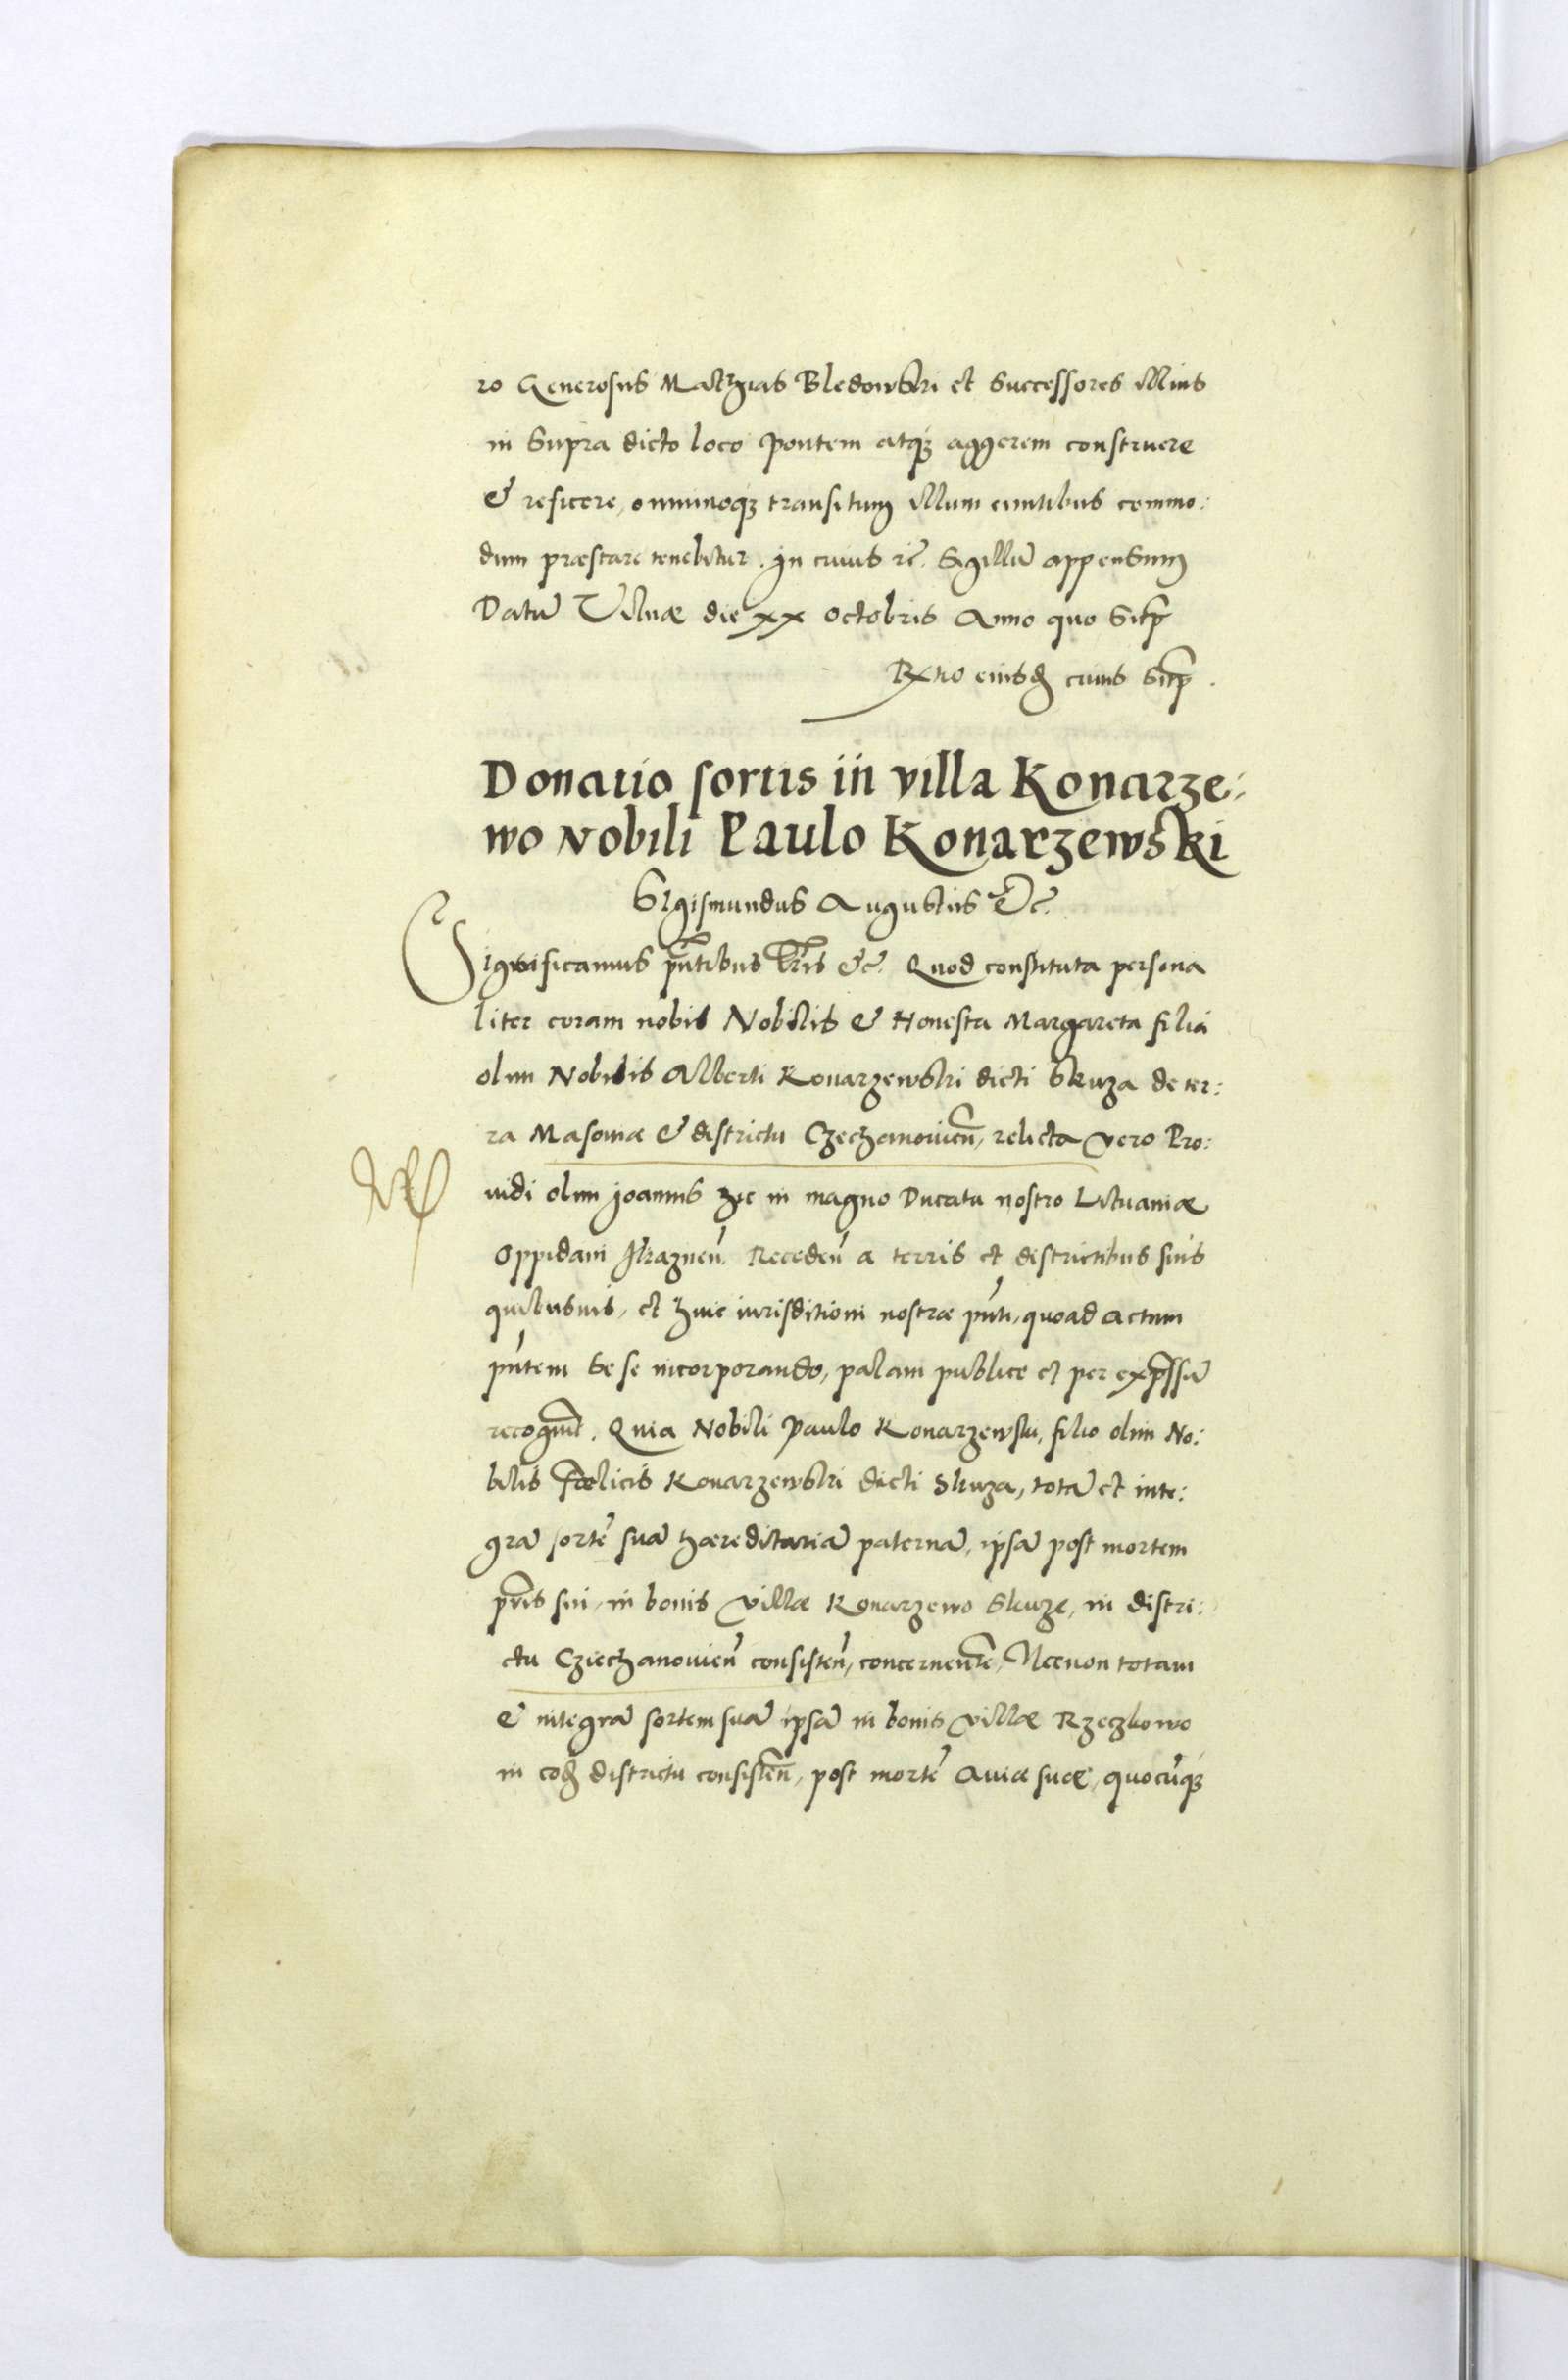 ro Generosus Mathias Bledowski et Successores illius
in Supra dicto loco pontem atq3 aggerem construere
& reficere, omninoq3 transitum illum euntibus commo:
dum præstare tenebitur. In cuius rē. Sigillū appensum
Datū Vilnæ die xx octobris Anno quo Sup̄
Rx̄no eiusd cuius Sup̄.
Donatio sortis in villa Konarze:
wo Nobili Paulo Konarzewski
Sigismundus Augustus &c̄.
Significamus pn̄tibus lr̄is &c̄. Quod constituta persona
liter coram nobis Nobilis & Honesta Margareta filia
olim Nobilis Alberti Konarzewski dicti Skuza de ter:
ra Masouiæ & districtu Czechanouien̄, relicta vero Pro:
uidi olim Joannis hic in magno Ducatu nostro Lituaniæ
Oppidani Receden̄ a terris et districtibus suis
quibusuis, et huic iurisditioni nostræ pn̄ti, quoad actum
pn̄tem se se incorporando, palam publice et per exp̄ssū
recogūit. Quia Nobili Paulo Konarzewski, filio olim No:
bilis Fœlicis Konarzewski dicti Skuza, totā et inte:
grā sortē suā hæreditariā paternā, ipsā post mortem
pr̄is sui, in bonis villæ Konarzewo Skuze, in distri:
ctu Cziechanouien̄ consisten̄, concernentē, Necnon totam
& integrā sortem suā ipsā in bonis villæ Rzeczkowo
in eod districtu consisten̄, post mortē Auiæ suæ, quocūq3